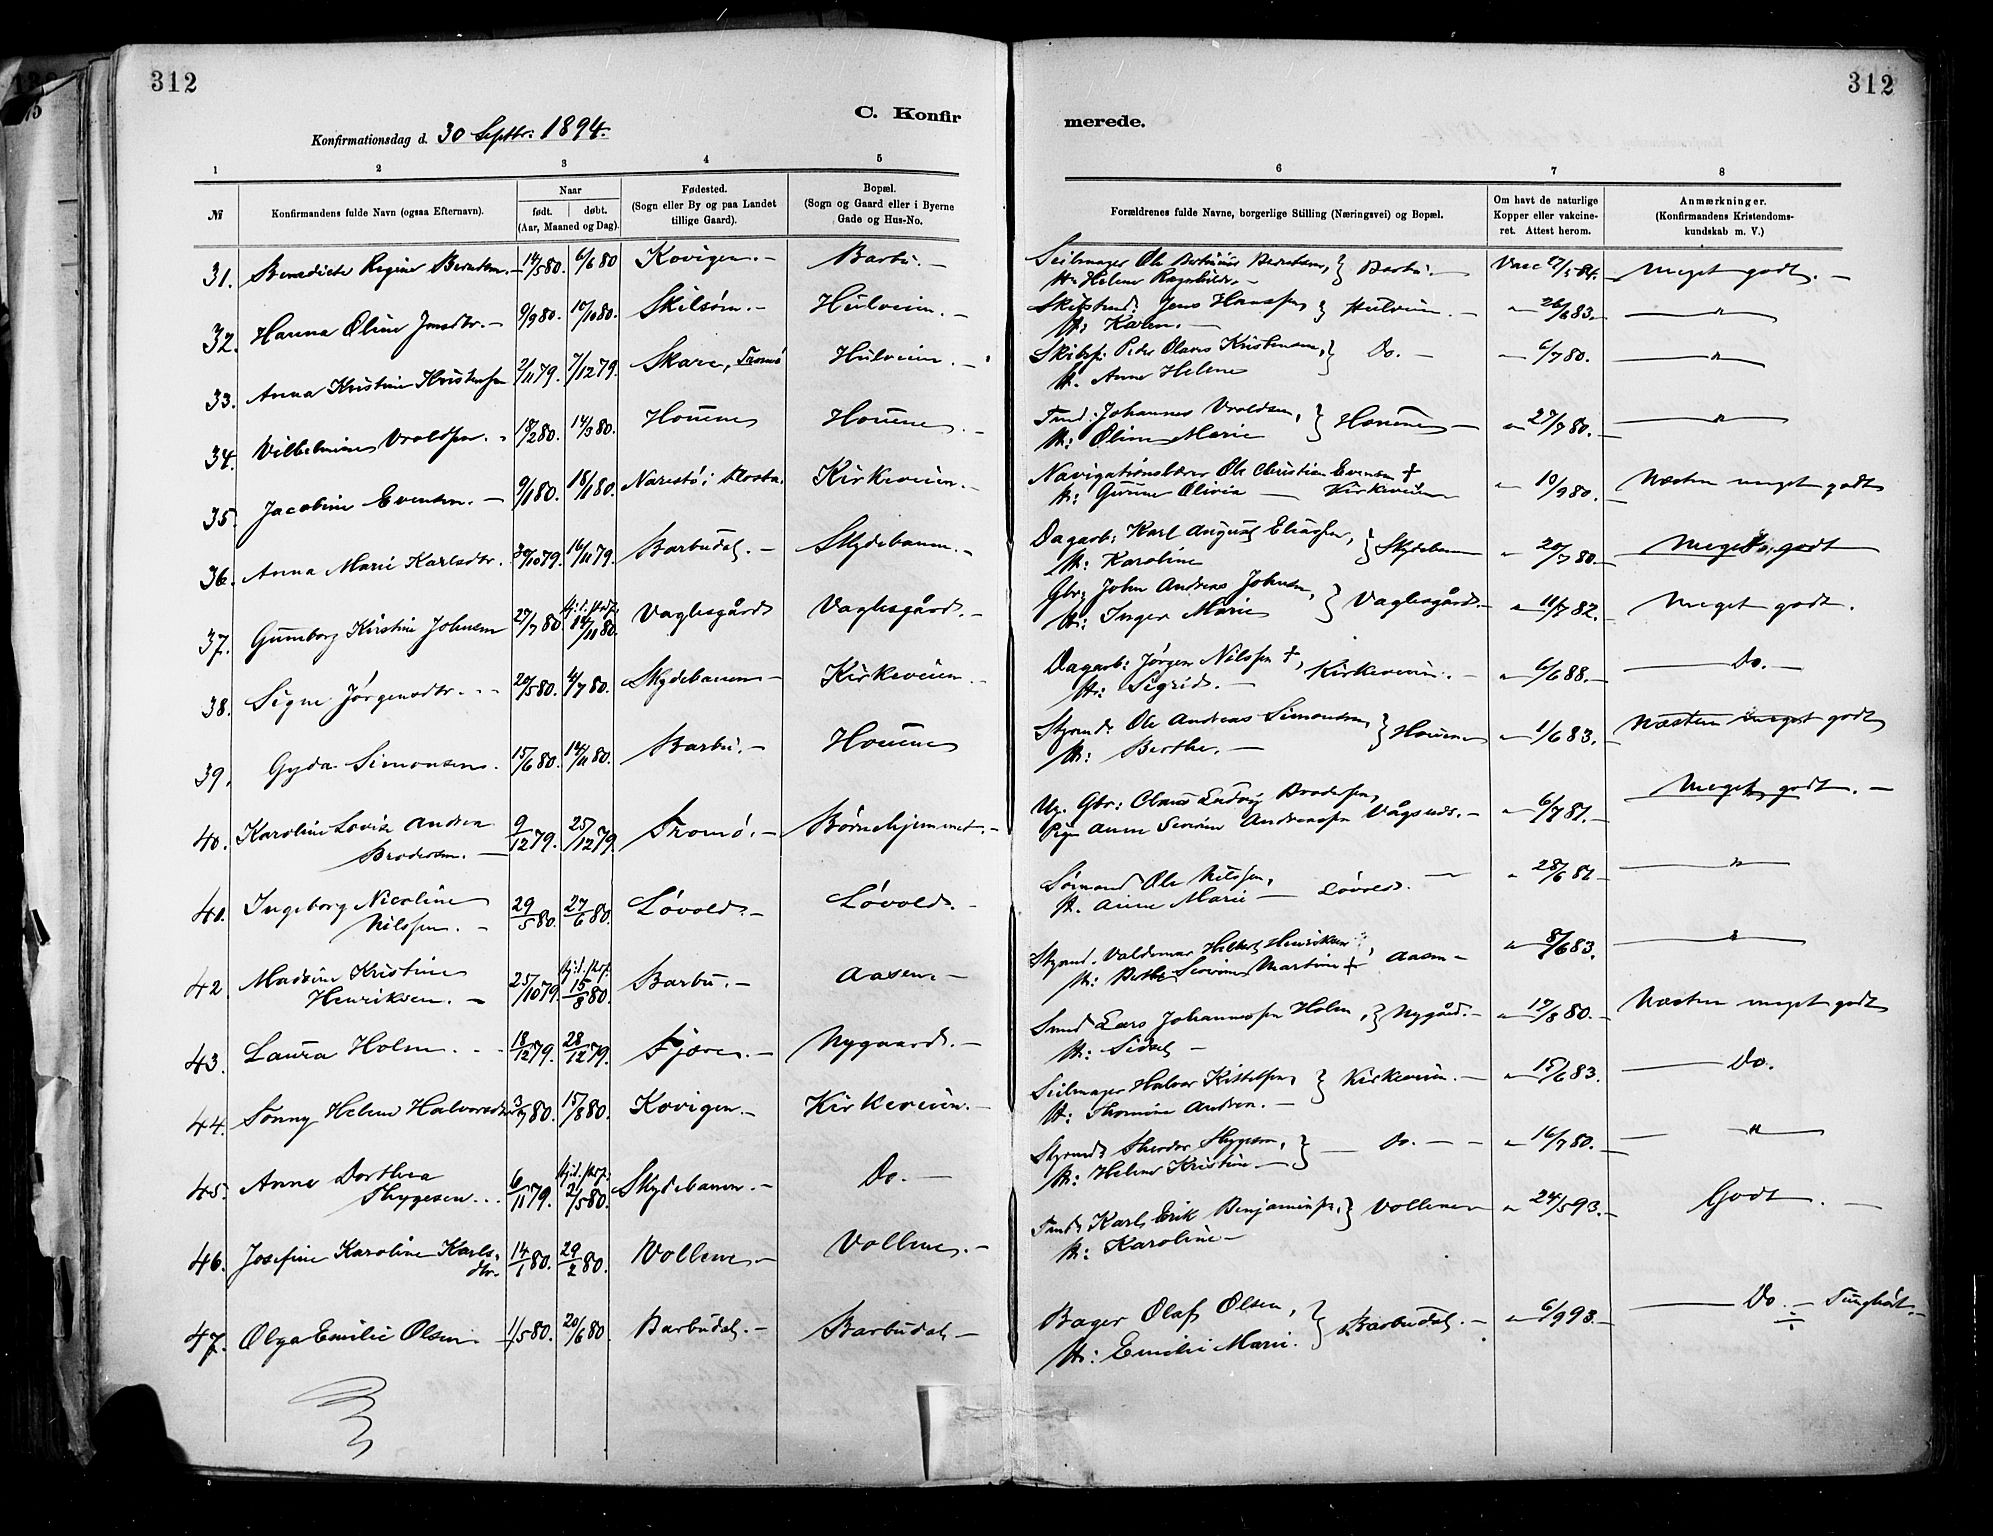 312
312
C. Konfir
merede.
Konfirmationsdag d. 30 Septbr. 1894.
1 2 3 4 5
6 7 8
№ Konfirmandens fulde Navn (ogsaa Efternavn). Naar født. døbt. (Aar, Maaned og Dag). Fødested. (Sogn eller By og paa Landet tillige Gaard). Bopæl. (Sogn og Gaard eller i Byerne Gade og Hus-No.
Forældrenes fulde Navne, borgerlige Stilling (Næringsvei) og Bopæl. Om havt de naturlige Kopper eller vakcineret. Attest herom. Anmærkninger. (Konfirmandens Kristendomskundskab m. V.)
31. Benedicte Regine Berntsen. 14/5 80. 6/6 80 Kovigen. Barbu.
Seilmager Ole Berntsen, } Barbu. Vacc 17/5 84. Meget godt.
H. Helene Ragnhilds.
32. Hanna Oline Jensdtr. 9/9 80. 10/10 80. Skilsøm. Hulveien.
Skibstmd: Jens Hanssen } Hulveien. " 26/6 83. "
H: Karen.
33. Anna Kristine Kristensen 2/11 79. 7/12 79. Skare, Tromø Hulveien.
Skibsf: Peder Olaves Kristensen, } Do. " 6/7 80. "
H. Anne Helene
34. Vilhelmine Vroldsen. 18/2 80. 14/3 80. Houene Houene.
Tmd: Johannes Vroldsen, } Houene " 27/7 80. "
H: Oline Marie
35. Jacobine Evensen. 9/1 80. 18/1 80. Narestø i Flosta. Kirkeveien.
Navigationslærer Ole Christian Evensen † " 10/9 80. Næsten meget godt
H: Gurine Olivia Kirkeveien
36. Anna Marie Karlsdtr. 30/10 79. 16/11 79. Barbudal. Skydebanen.
Dagarb: Karl August Eliassen, } Skydebanen " 20/7 80. Meget godt
H: Karoline
37. Gunborg Kirstine Johnsen 27/7 80 hj.d. stadf. 14/11 80. Vaglesgård Vaglesgård.
Gbr John Andreas Johnsen, } Vaglesgård. " 11/7 82. Meget godt.
H: Inger Marie
38. Signe Jørgensdtr. 20/5 80. 4/7 80. Skydebanen Kirkeveien.
Dagarb: Jørgen Nilssen †, Kirkeveien. " 6/6 88. Do.
H: Sigrid.
39. Gyda Simonsen. 15/6 80. 14/11 80. Barbu. Houene
Styrmd: Ole Andreas Simonsen, } Houene " 1/6 83. Næsten meget godt
H: Berthe.
40. Karoline Lovise Andrea 9/12 79. 25/12 79. Tromø. Børnehjemmet.
Brodersen.
Ug. Gbr: Claus Ludvig Brodersen, " 6/7 81. Meget godt.
Pige Anne Severine Andreassen Vågsnes.
41. Ingeborg Nicoline 29/5 80. 27/6 80. Løvold. Løvold.
Nilssen.
Sømand Ole Nilssen, Løvold. " 28/6 81 "
H. Anne Marie
42. Madsine Kristine 25/10 79. hj.d. stadf. 15/8 80. Barbu. Aasen.
Henriksen.
Styrmd. Valdemar Helbert Henriksen, Aasen " 8/6 83. "
H: Berthe Severine Martine †
43. Laura Holm. 18/12 79. 28/12 79. Fjære. Nygaard.
Smed Lars Johannessen Holm, } Nygård. " 17/8 80. Næsten meget godt
H: Sidsel
44. Sonny Helene Halvorsdtr 3/7 80. 15/8 80. Kovigen. Kirkeveien.
Seilmager Halvor Kittelsen, } Kirkeveien. " 15/6 83. Do.
H: Thomine Andrea.
45. Anne Dorthea 6/11 79. hj.d. stadf. 2/5 80. Skydebanen. Do.
Thygesen.
Styrmd: Theodor Thygesen, } Do. " 16/7 80. "
H: Helene Kristine
46. Josefine Karoline Karls- 14/1 80. 29/2 80. Vollene Vollene.
dtr.
Tmd: Karl Erik Benjaminsen, } Vollene " 24/5 93. Godt.
H: Karoline
47. Olga Emilie Olsen 11/5 80. 20/6 80. Barbudal. Barbudal
Bager Olaf Olsen, } Barbudal. " 6/9 93. Do. Tunghørt.
H: Emilie Marie.